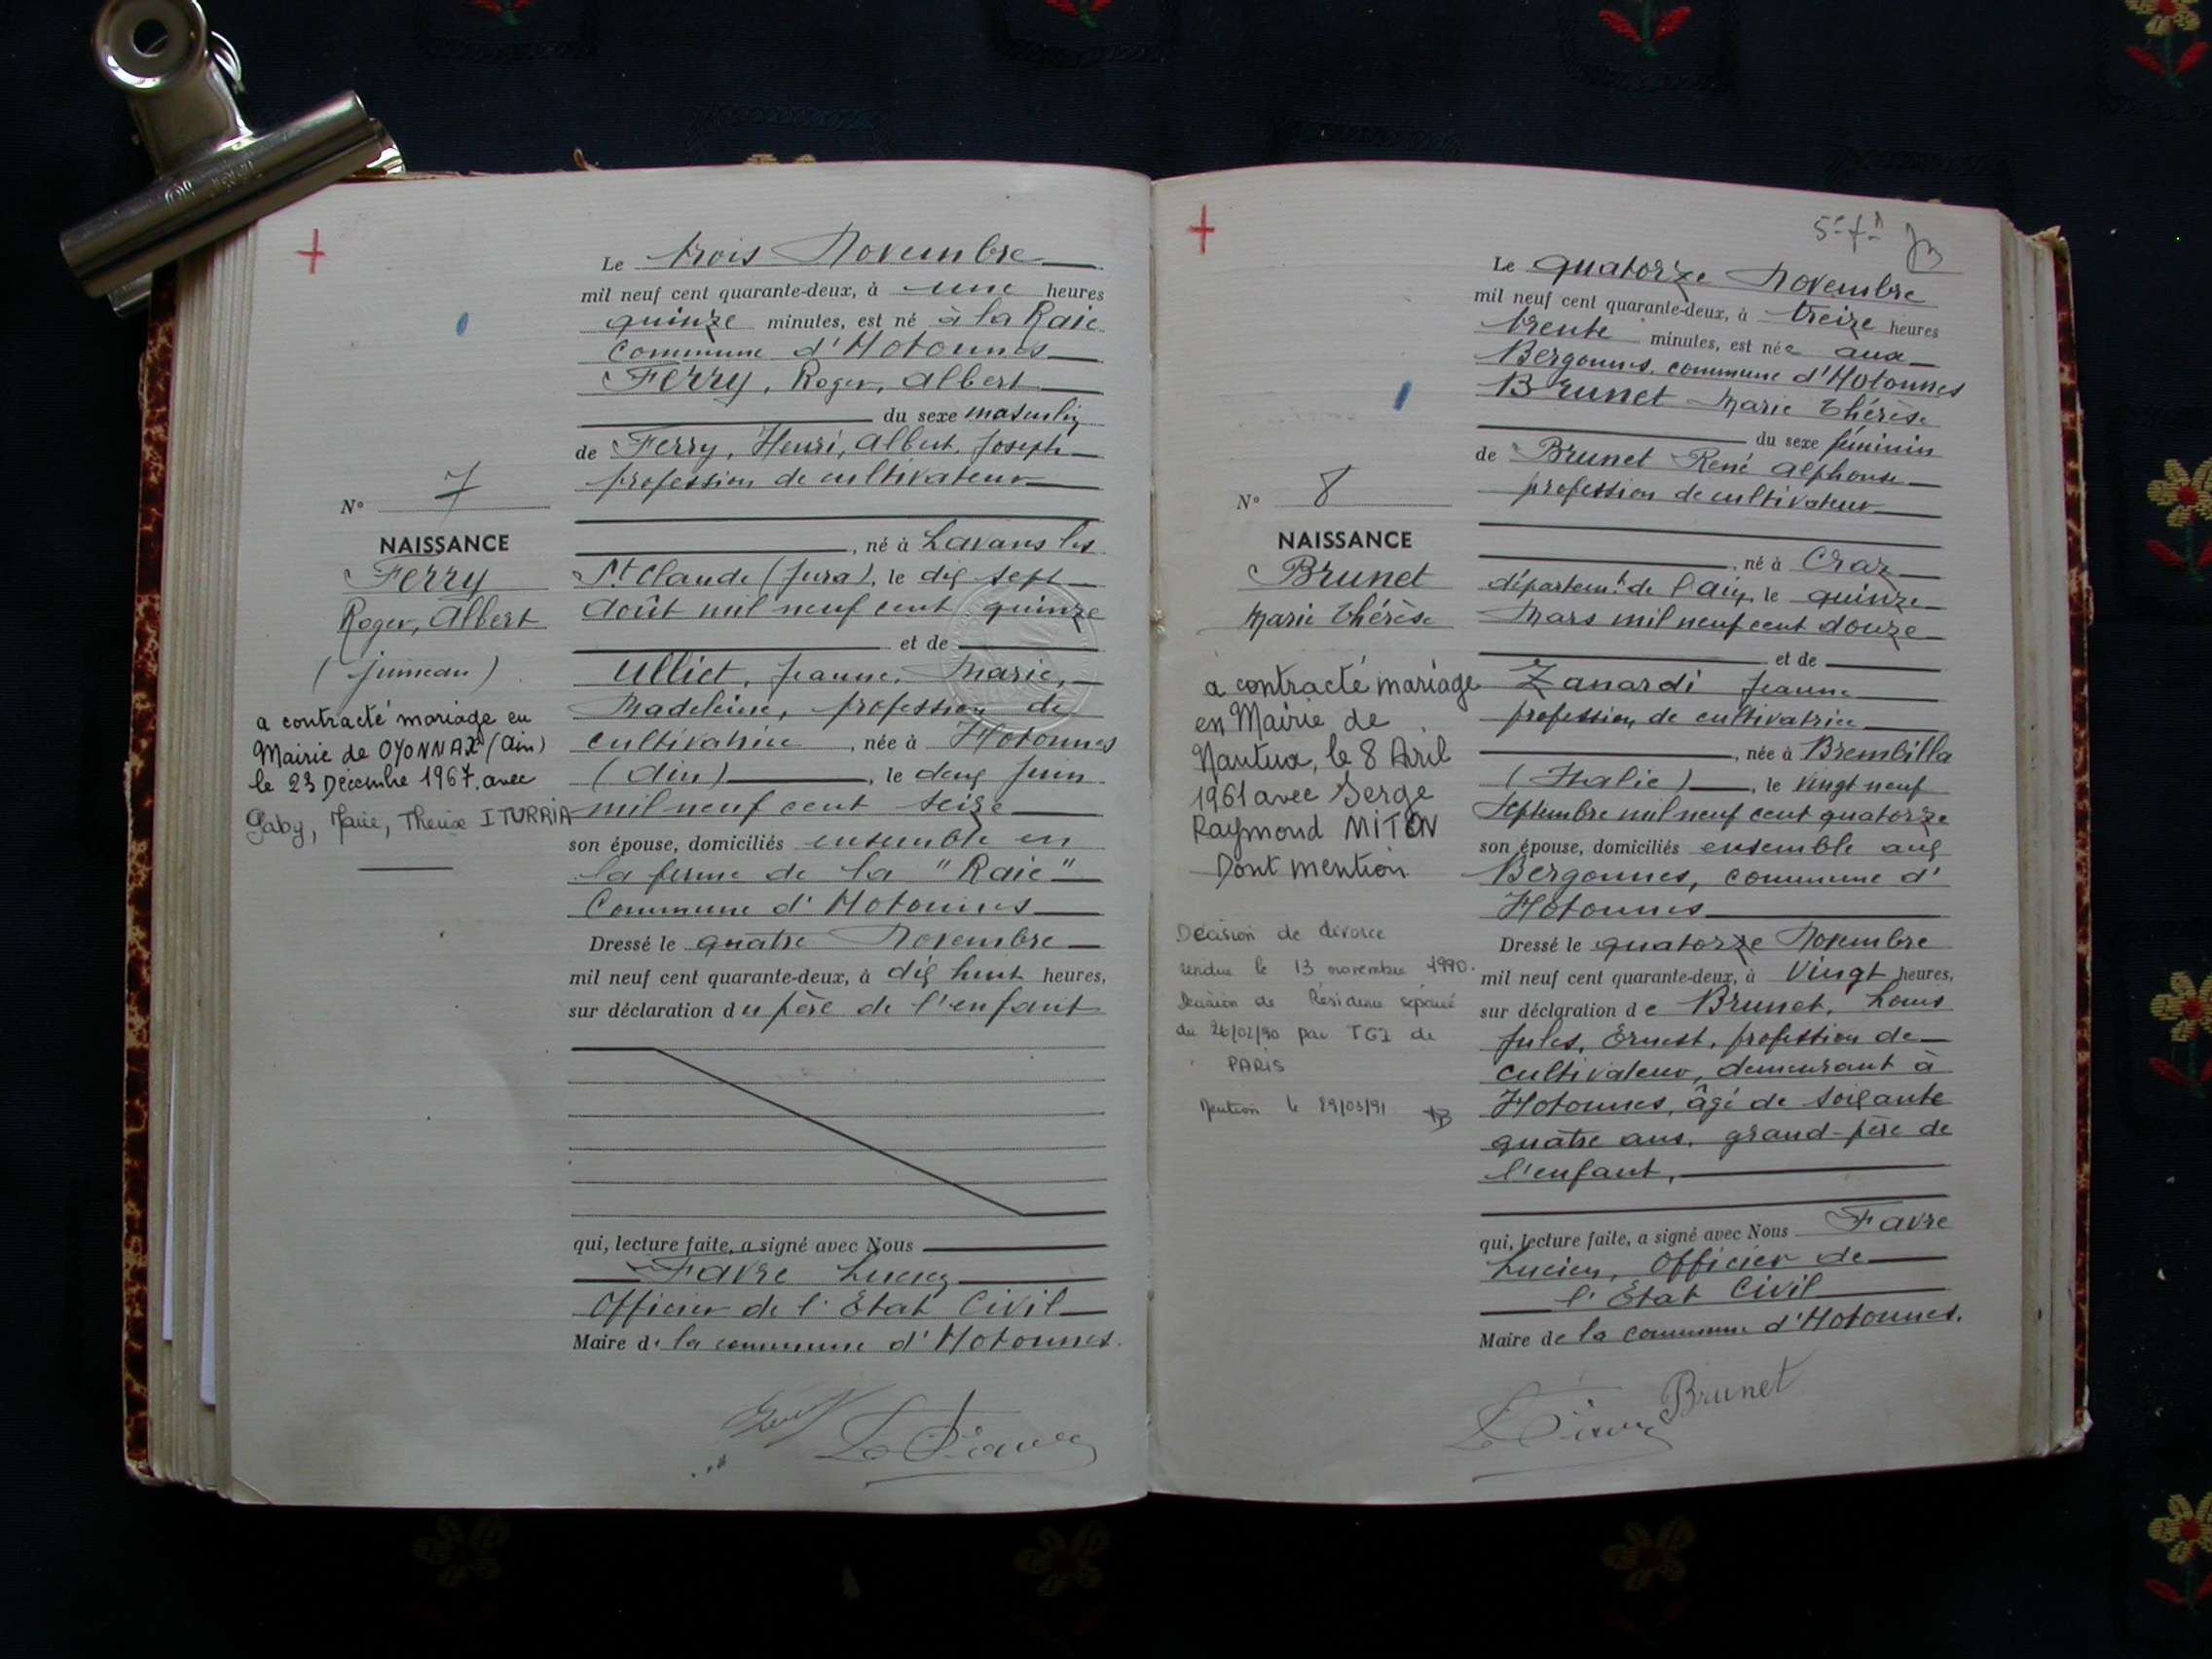 Le trois Novembre
mil neuf cent quarante-deux, à une heures
quinze minutes, est né à la Raie
Commune d'Hotonnes
Ferry, Roger, Albert
du sexe masculin
de Ferry, Henri, Albert, Joseph
profession de cultivateur
N° 7
NAISSANCE
Ferry
Roger, Albert
(jumeau)
a contracté mariage en
Mairie de OYONNAX (Ain)
le 23 Décembre 1967. avec
Gaby, Marie, Thérèse ITURRIA
, né à Lavans les
St Claude (Jura), le dix sept
Août mil neuf cent quinze
et de
Ulliet, Jeanne, Marie,
Madeleine, profession de
cultivatrice, née à Hotonnes
(Ain), le deux Juin
mil neuf cent seize
son épouse, domiciliés ensemble en
la ferme de la "Raie"
Commune d'Hotonnes
Dressé le quatre Novembre
mil neuf cent quarante-deux, à dix huit heures,
sur déclaration du père de l'enfant
qui, lecture faite, a signé avec Nous
Favre Lucien
Officier de l'Etat Civil
Maire de la commune d'Hotonnes.
Le quatorze Novembre
mil neuf cent quarante-deux, à treize heures
trente minutes, est née aux
Bergonnes, commune d'Hotonnes
Brunet Marie Thérèse
du sexe féminin
de Brunet René Alphonse
profession de cultivateur
N° 8
NAISSANCE
Brunet
Marie Thérèse
a contracté mariage
en Mairie de
Nantua, le 8 Avril
1961 avec Serge
Raymond MITON
Dont mention
Décision de divorce
rendue le 13 novembre 1990.
Décision de Résidence séparée
du 26/02/90 par TGI de
PARIS
Mention le 29/03/91
, né à Craz
départemt de l'Ain, le quinze
Mars mil neuf cent douze
et de
Zanardi Jeanne
profession de cultivatrice
, née à Brembilla
(Italie), le vingt neuf
Septembre mil neuf cent quatorze
son épouse, domiciliés ensemble aux
Bergonnes, commune d'
Hotonnes
Dressé le quatorze Novembre
mil neuf cent quarante-deux, à vingt heures,
sur déclaration de Brunet, Louis
Jules, Ernest, profession de
cultivateur, demeurant à
Hotonnes, âgé de soixante
quatre ans, grand-père de
l'enfant,
qui, lecture faite, a signé avec Nous Favre
Lucien, Officier de
l'Etat Civil
Maire de la commune d'Hotonnes.
Brunet